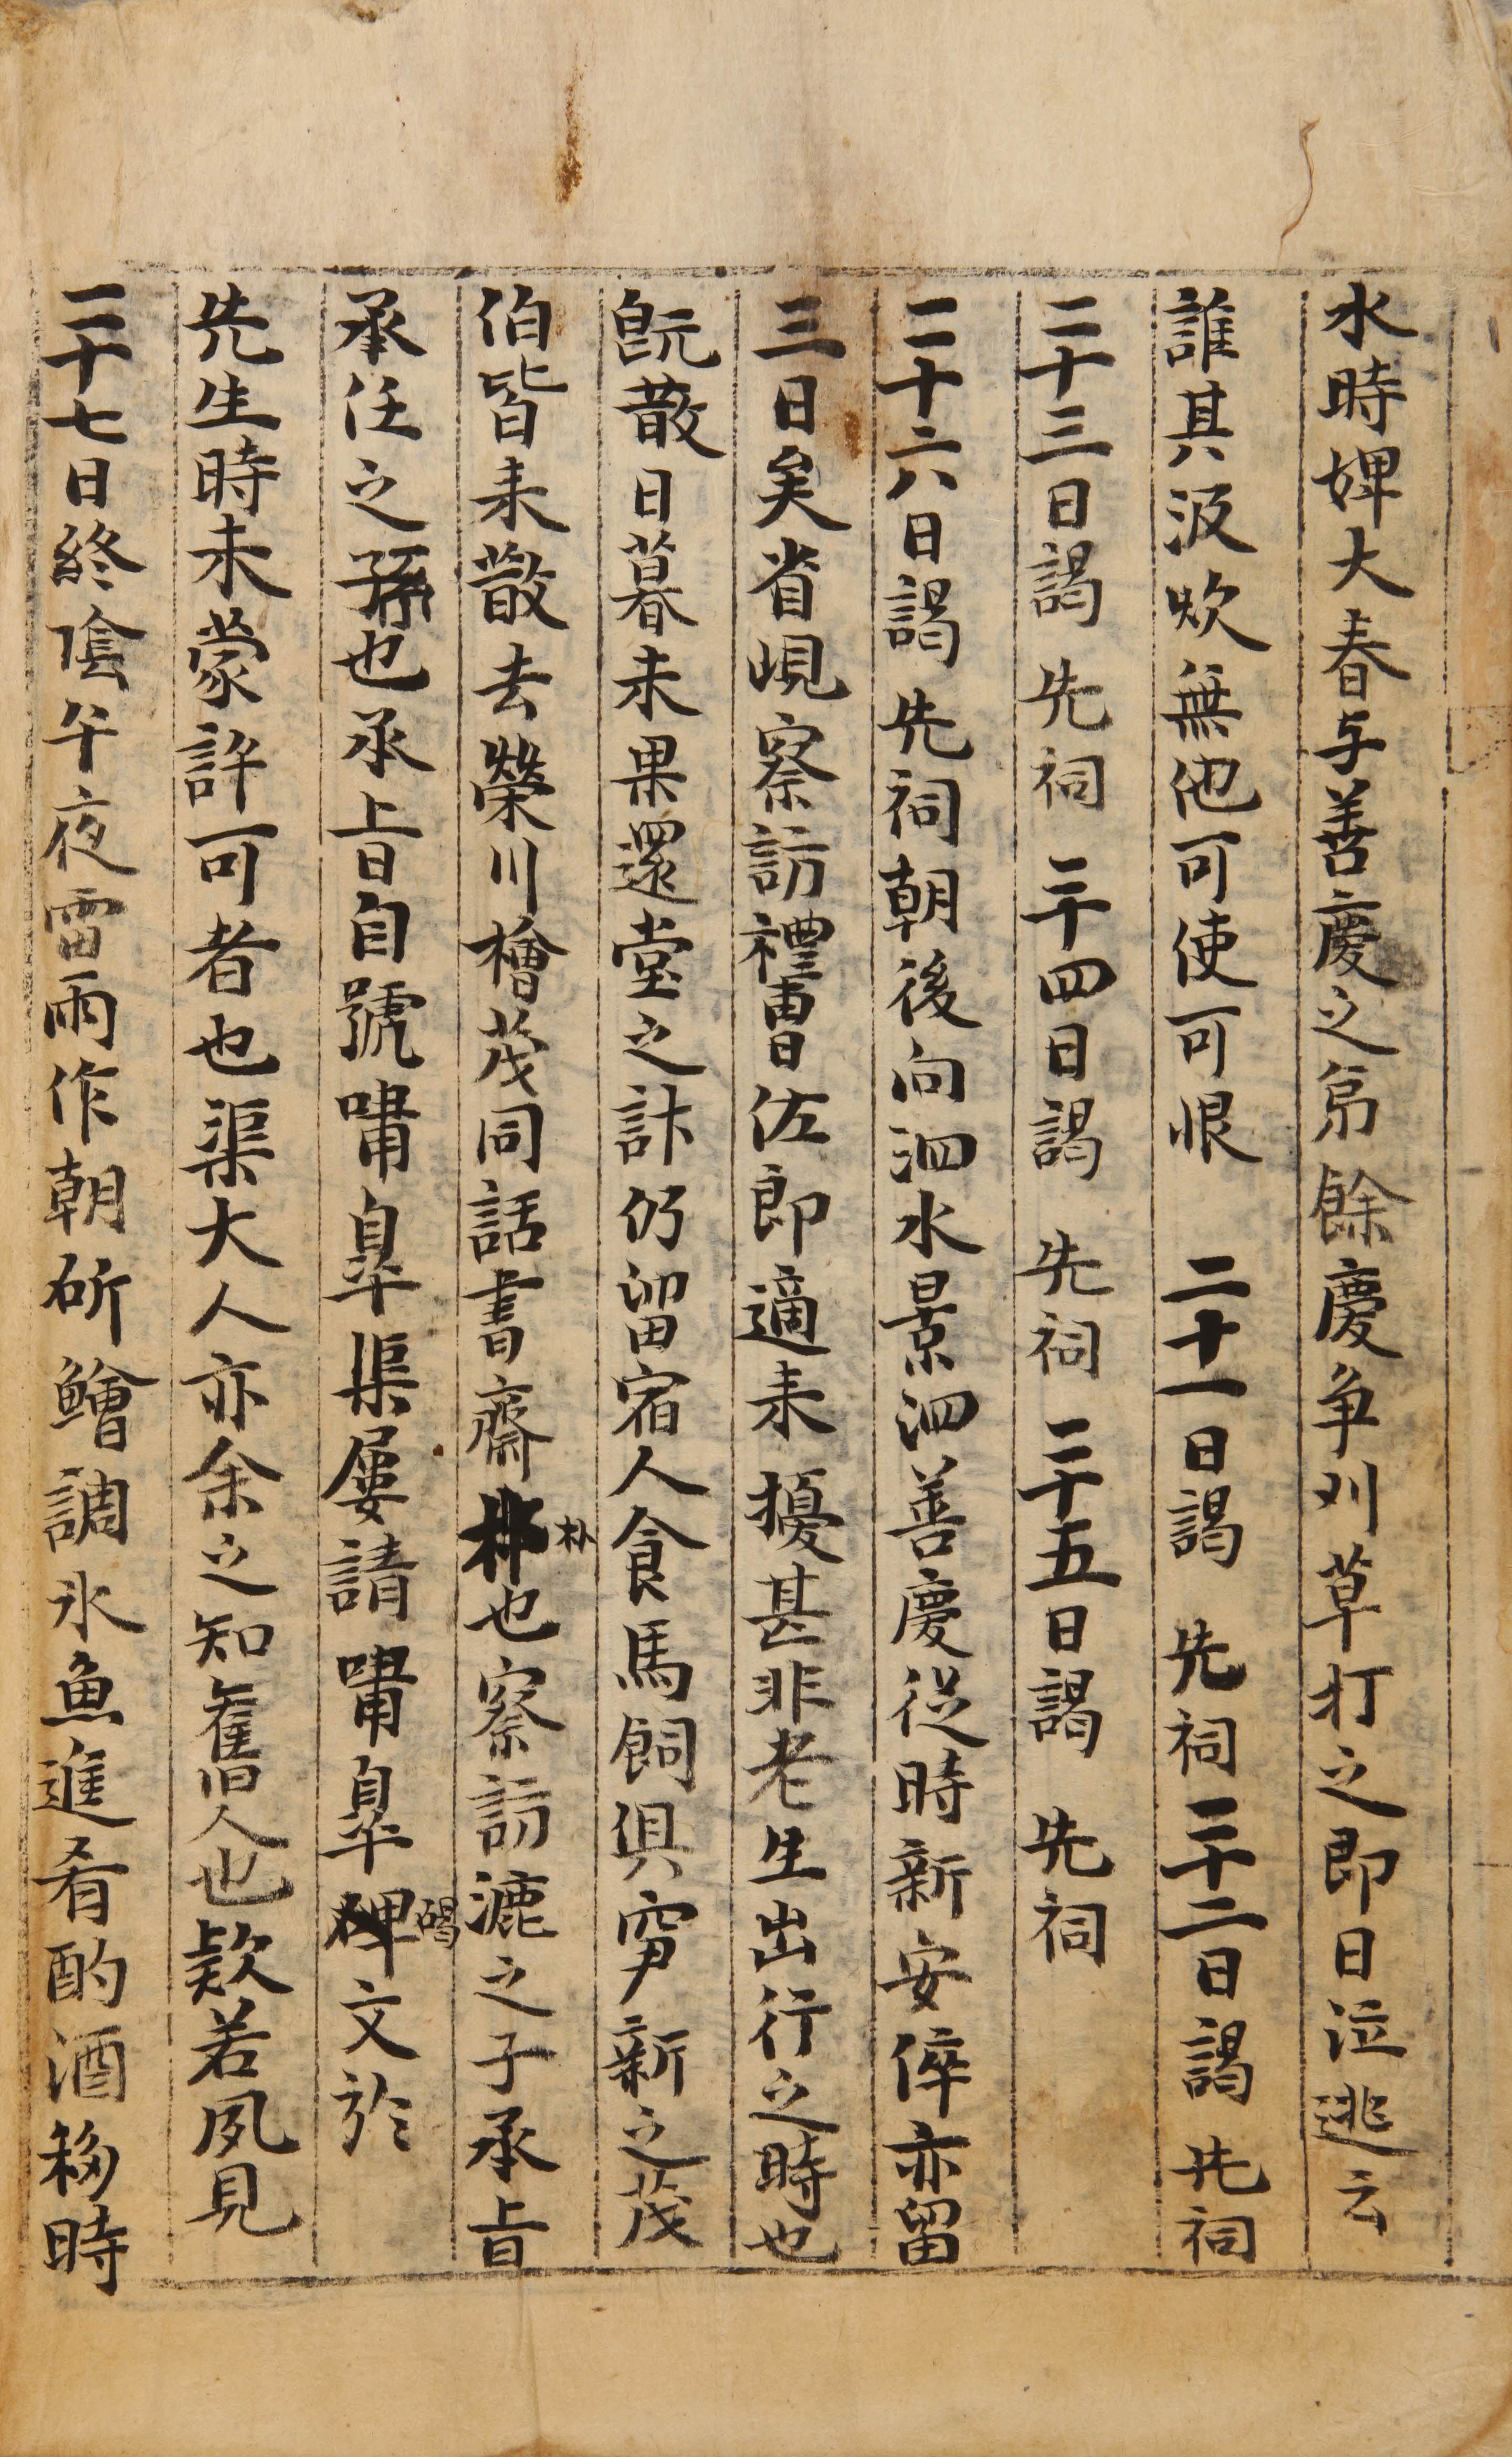 水時婢大春与善慶之弟餘慶争刈草打之即日泣逃云
誰其汲炊無他可使可恨 二十一日謁 先祠 二十二日謁 先祠
二十三日謁 先祠 二十四日謁 先祠 二十五日謁 先祠
二十六日謁 先祠朝後向泗水景泗善慶從時新安倅亦留
三日矣省峴察訪禮曹佐郎適来擾甚非老生出行之時也
旣散日暮未果還堂之計仍留宿人食馬飼俱窘新之茂
伯皆来散去榮川檜茂同話書齋朴也察訪漉之子承旨
承任之孫也承旨自號嘯皐渠屢請嘯皐碣文於
先生時未蒙許可者也渠大人亦余之知舊人也欵若夙見
二十七日終陰午夜雷雨作朝斫鱠調氷魚進肴酌酒移時